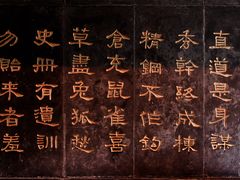 直道是身謀
秀幹終成棟
精鋼不作鉤
倉充鼠雀喜
草盡兔狐愁
史冊有遺訓
勿貽來者羞